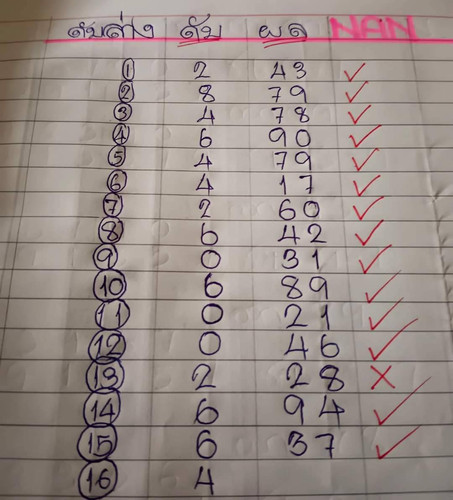 ดับล่าง ดับ ผล NAN
1 2 43 ✓
2 8 79 ✓
3 4 78 ✓
4 6 90 ✓
5 4 79 ✓
6 4 17 ✓
7 2 60 ✓
8 6 42 ✓
9 0 31 ✓
10 6 89 ✓
11 0 21 ✓
12 0 46 ✓
13 2 28 ✗
14 6 94 ✓
15 6 37 ✓
16 4